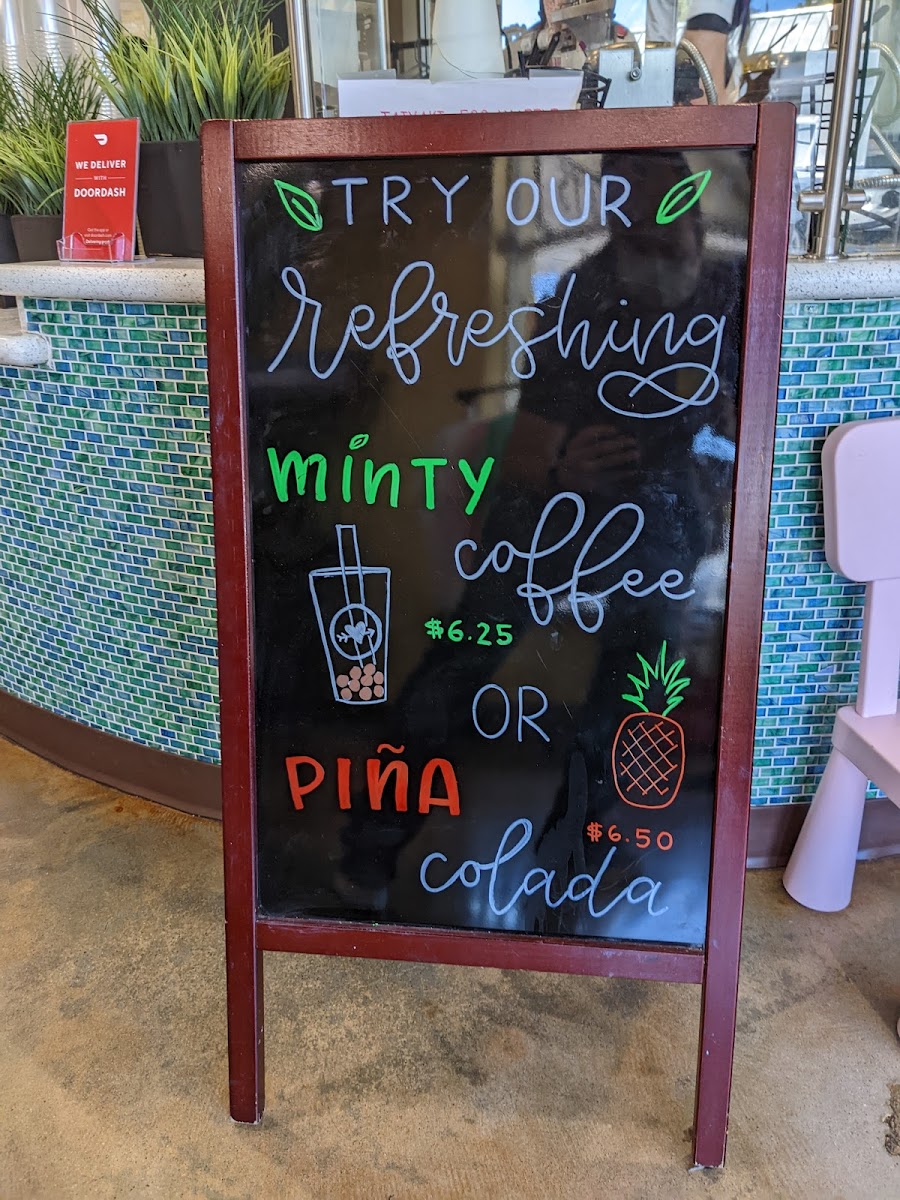 WE DELIVER
WITH
DOORDASH
TRY OUR
refreshing
minty
coffee
$6.25
OR
PIÑA
$6.50
colada